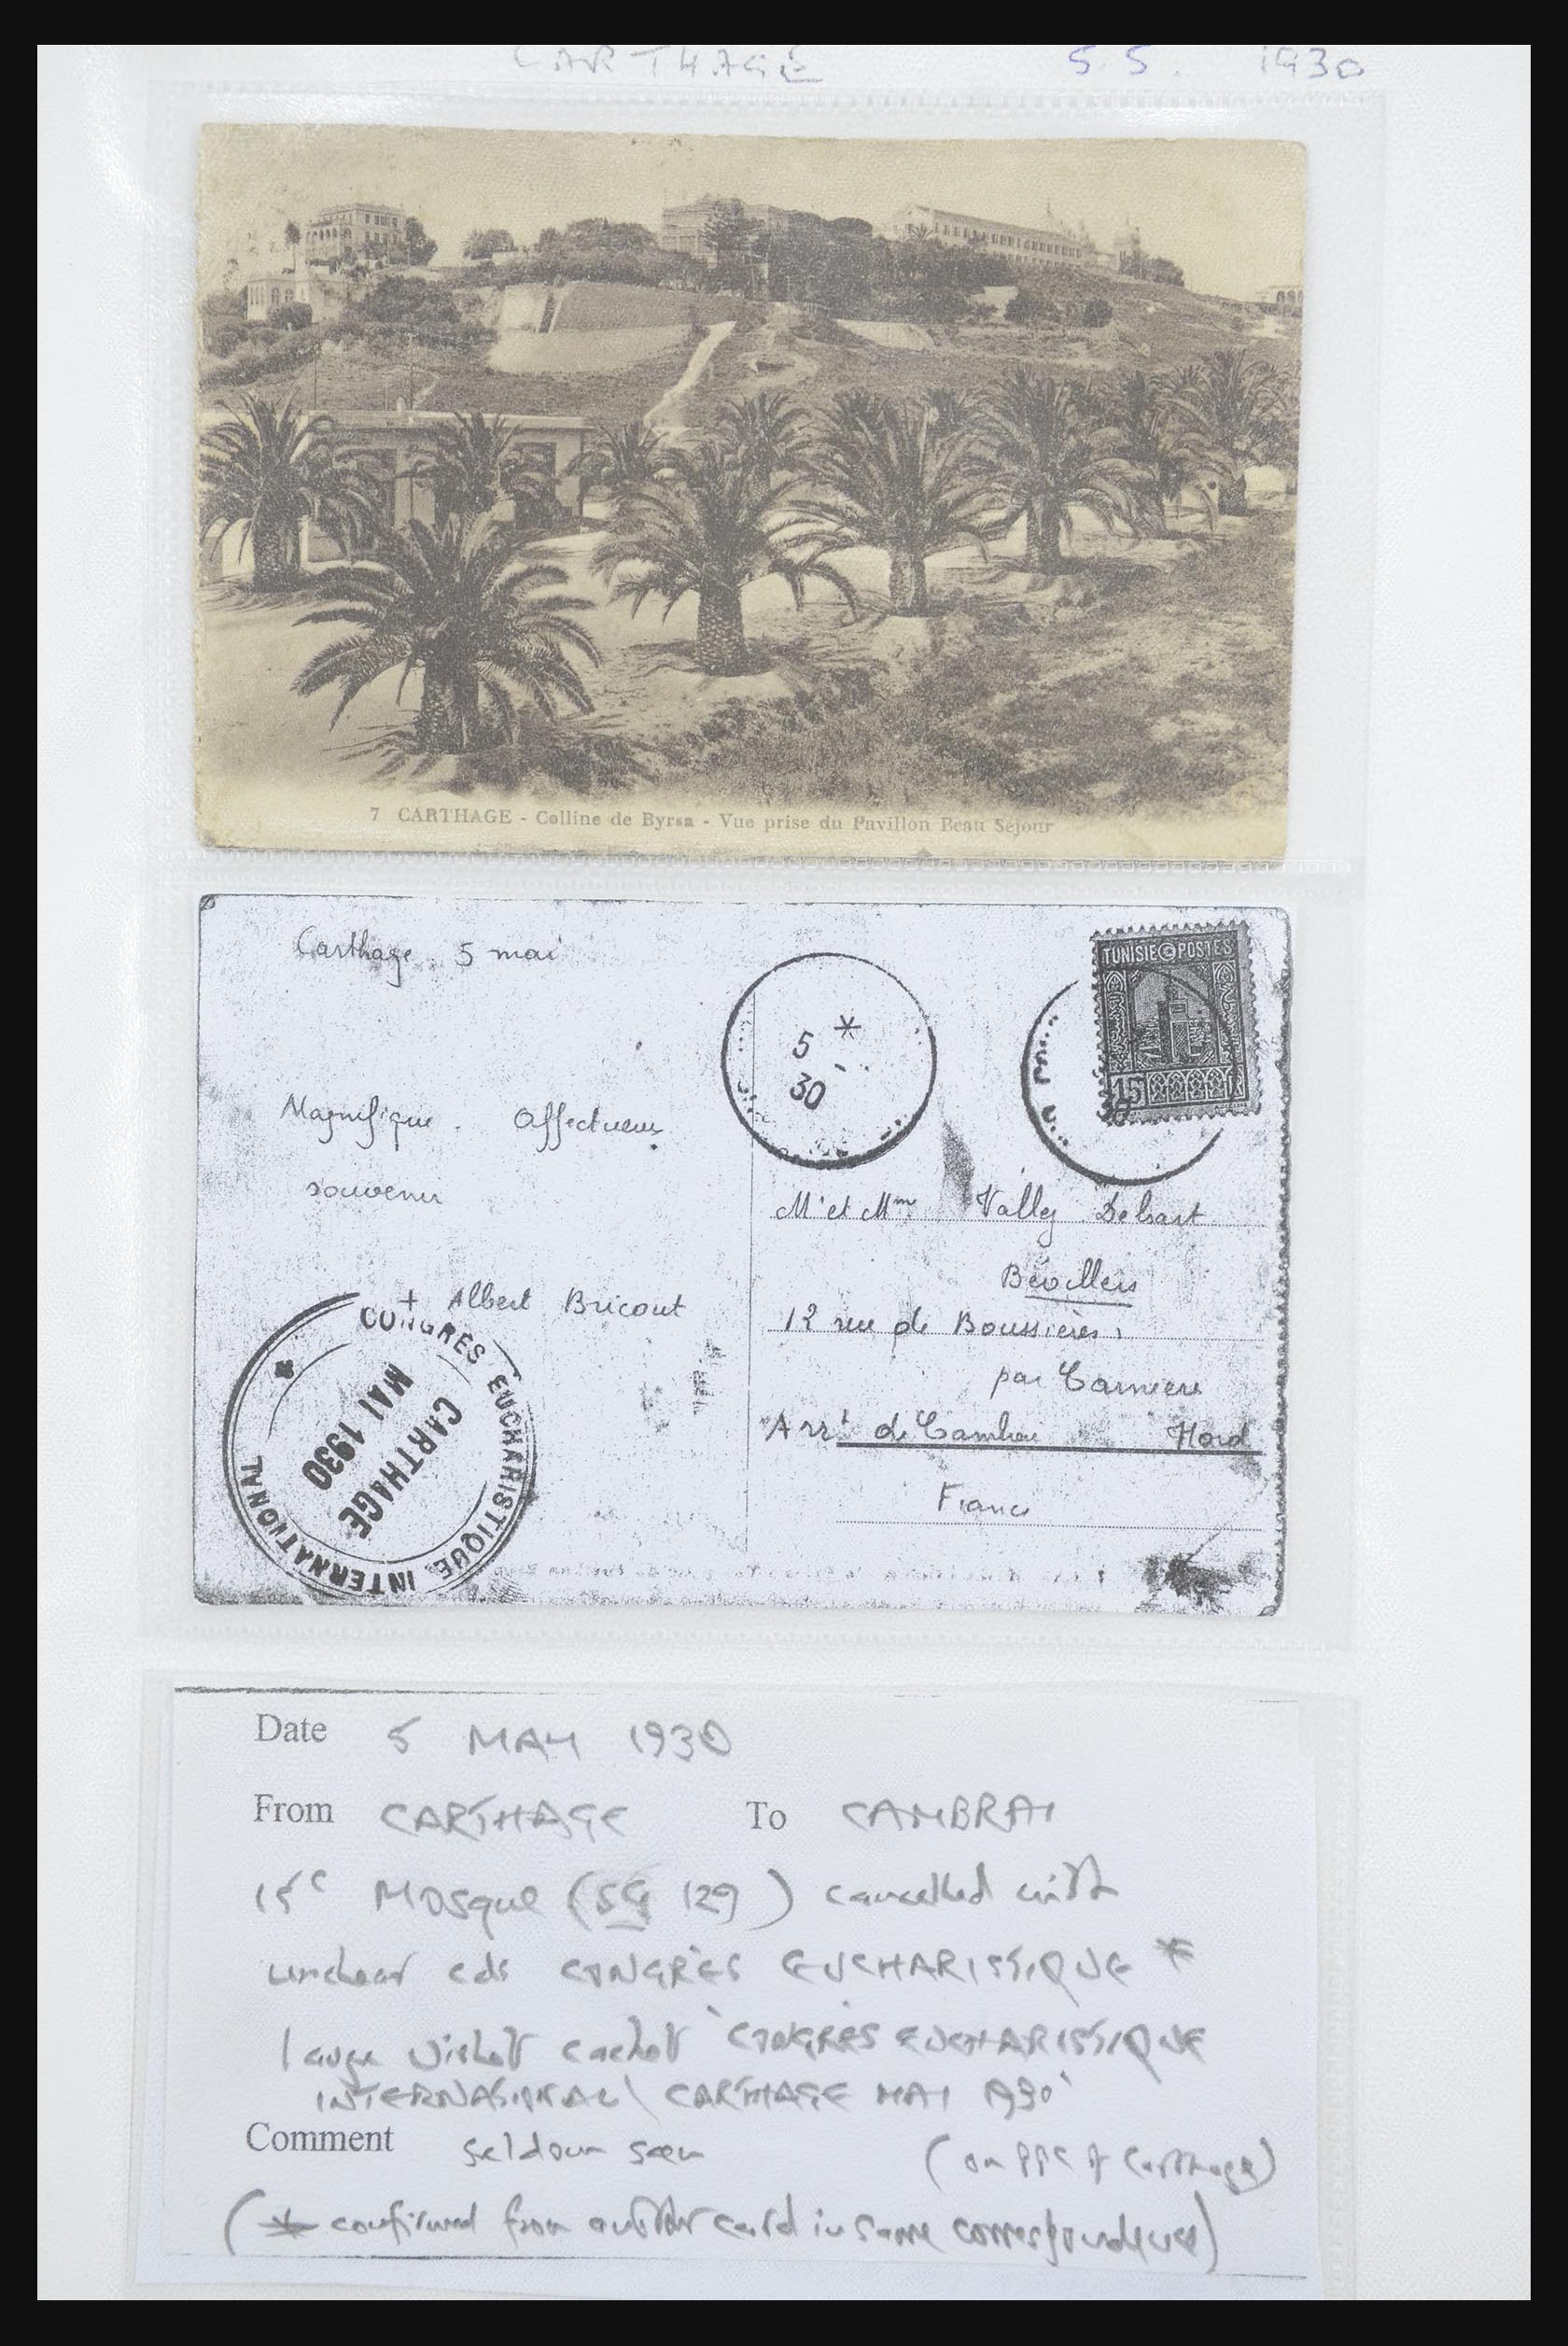 CARTHAGE 5.5. 1930
7 CARTHAGE - Colline de Byrsa - Vue prise du Pavillon Beau Séjour
Carthage. 5 mai
Magnifique. Affectueux
souvenir
+ Albert Bricout
CONGRÈS EUCHARISTIQUE INTERNATIONAL
CARTHAGE
MAI 1930
*
5 -
30
TUNISIE POSTES
15
30
Mr et Mme Vally Delsart
Bévillers
12 rue de Boussières
par Carnieres
Arrt de Cambrai Nord
France
Date 5 MAY 1930
From CARTHAGE To CAMBRAI
15c Mosque (SG 129) cancelled with
unclear cds CONGRÈS EUCHARISTIQUE *
large violet cachet 'CONGRÈS EUCHARISTIQUE
INTERNATIONAL \ CARTHAGE MAI 1930'
Comment seldom seen (on PPC of Carthage)
(* confirmed from another card in same correspondence)